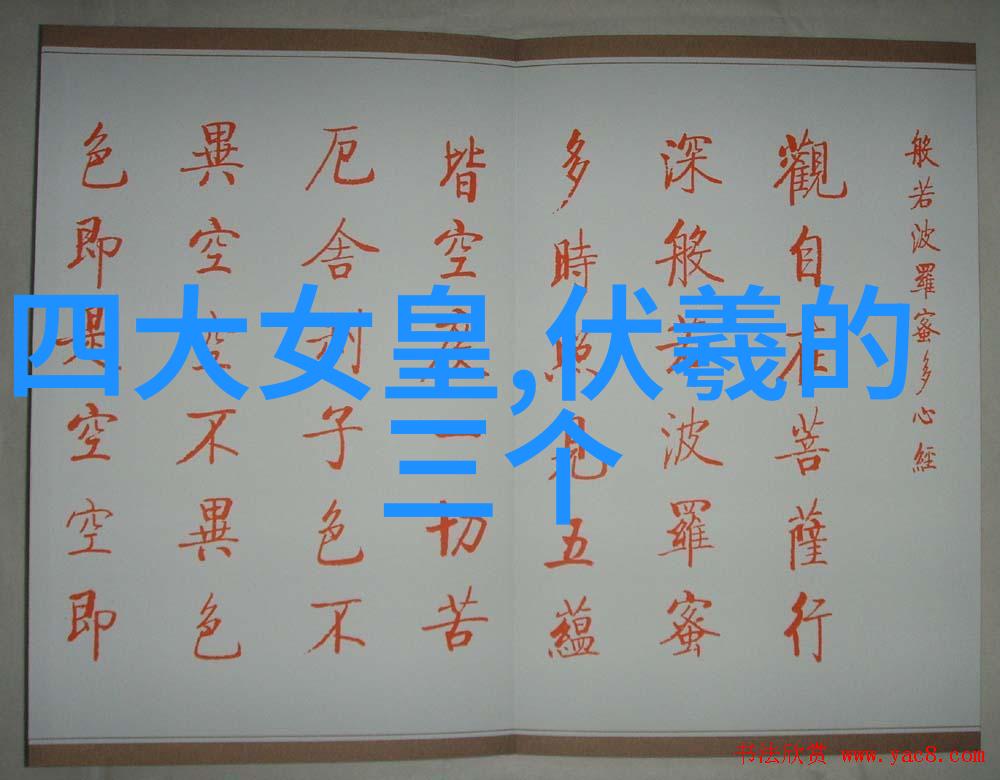 四大女皇,伏羲的
三个
般若波羅蜜多心經
觀自在菩薩行
深般若波羅蜜
多時照見五蘊
皆空度一切苦
厄舍利子色不
異空空不異色
色即是空空即
书法欣赏 www.yac8.com